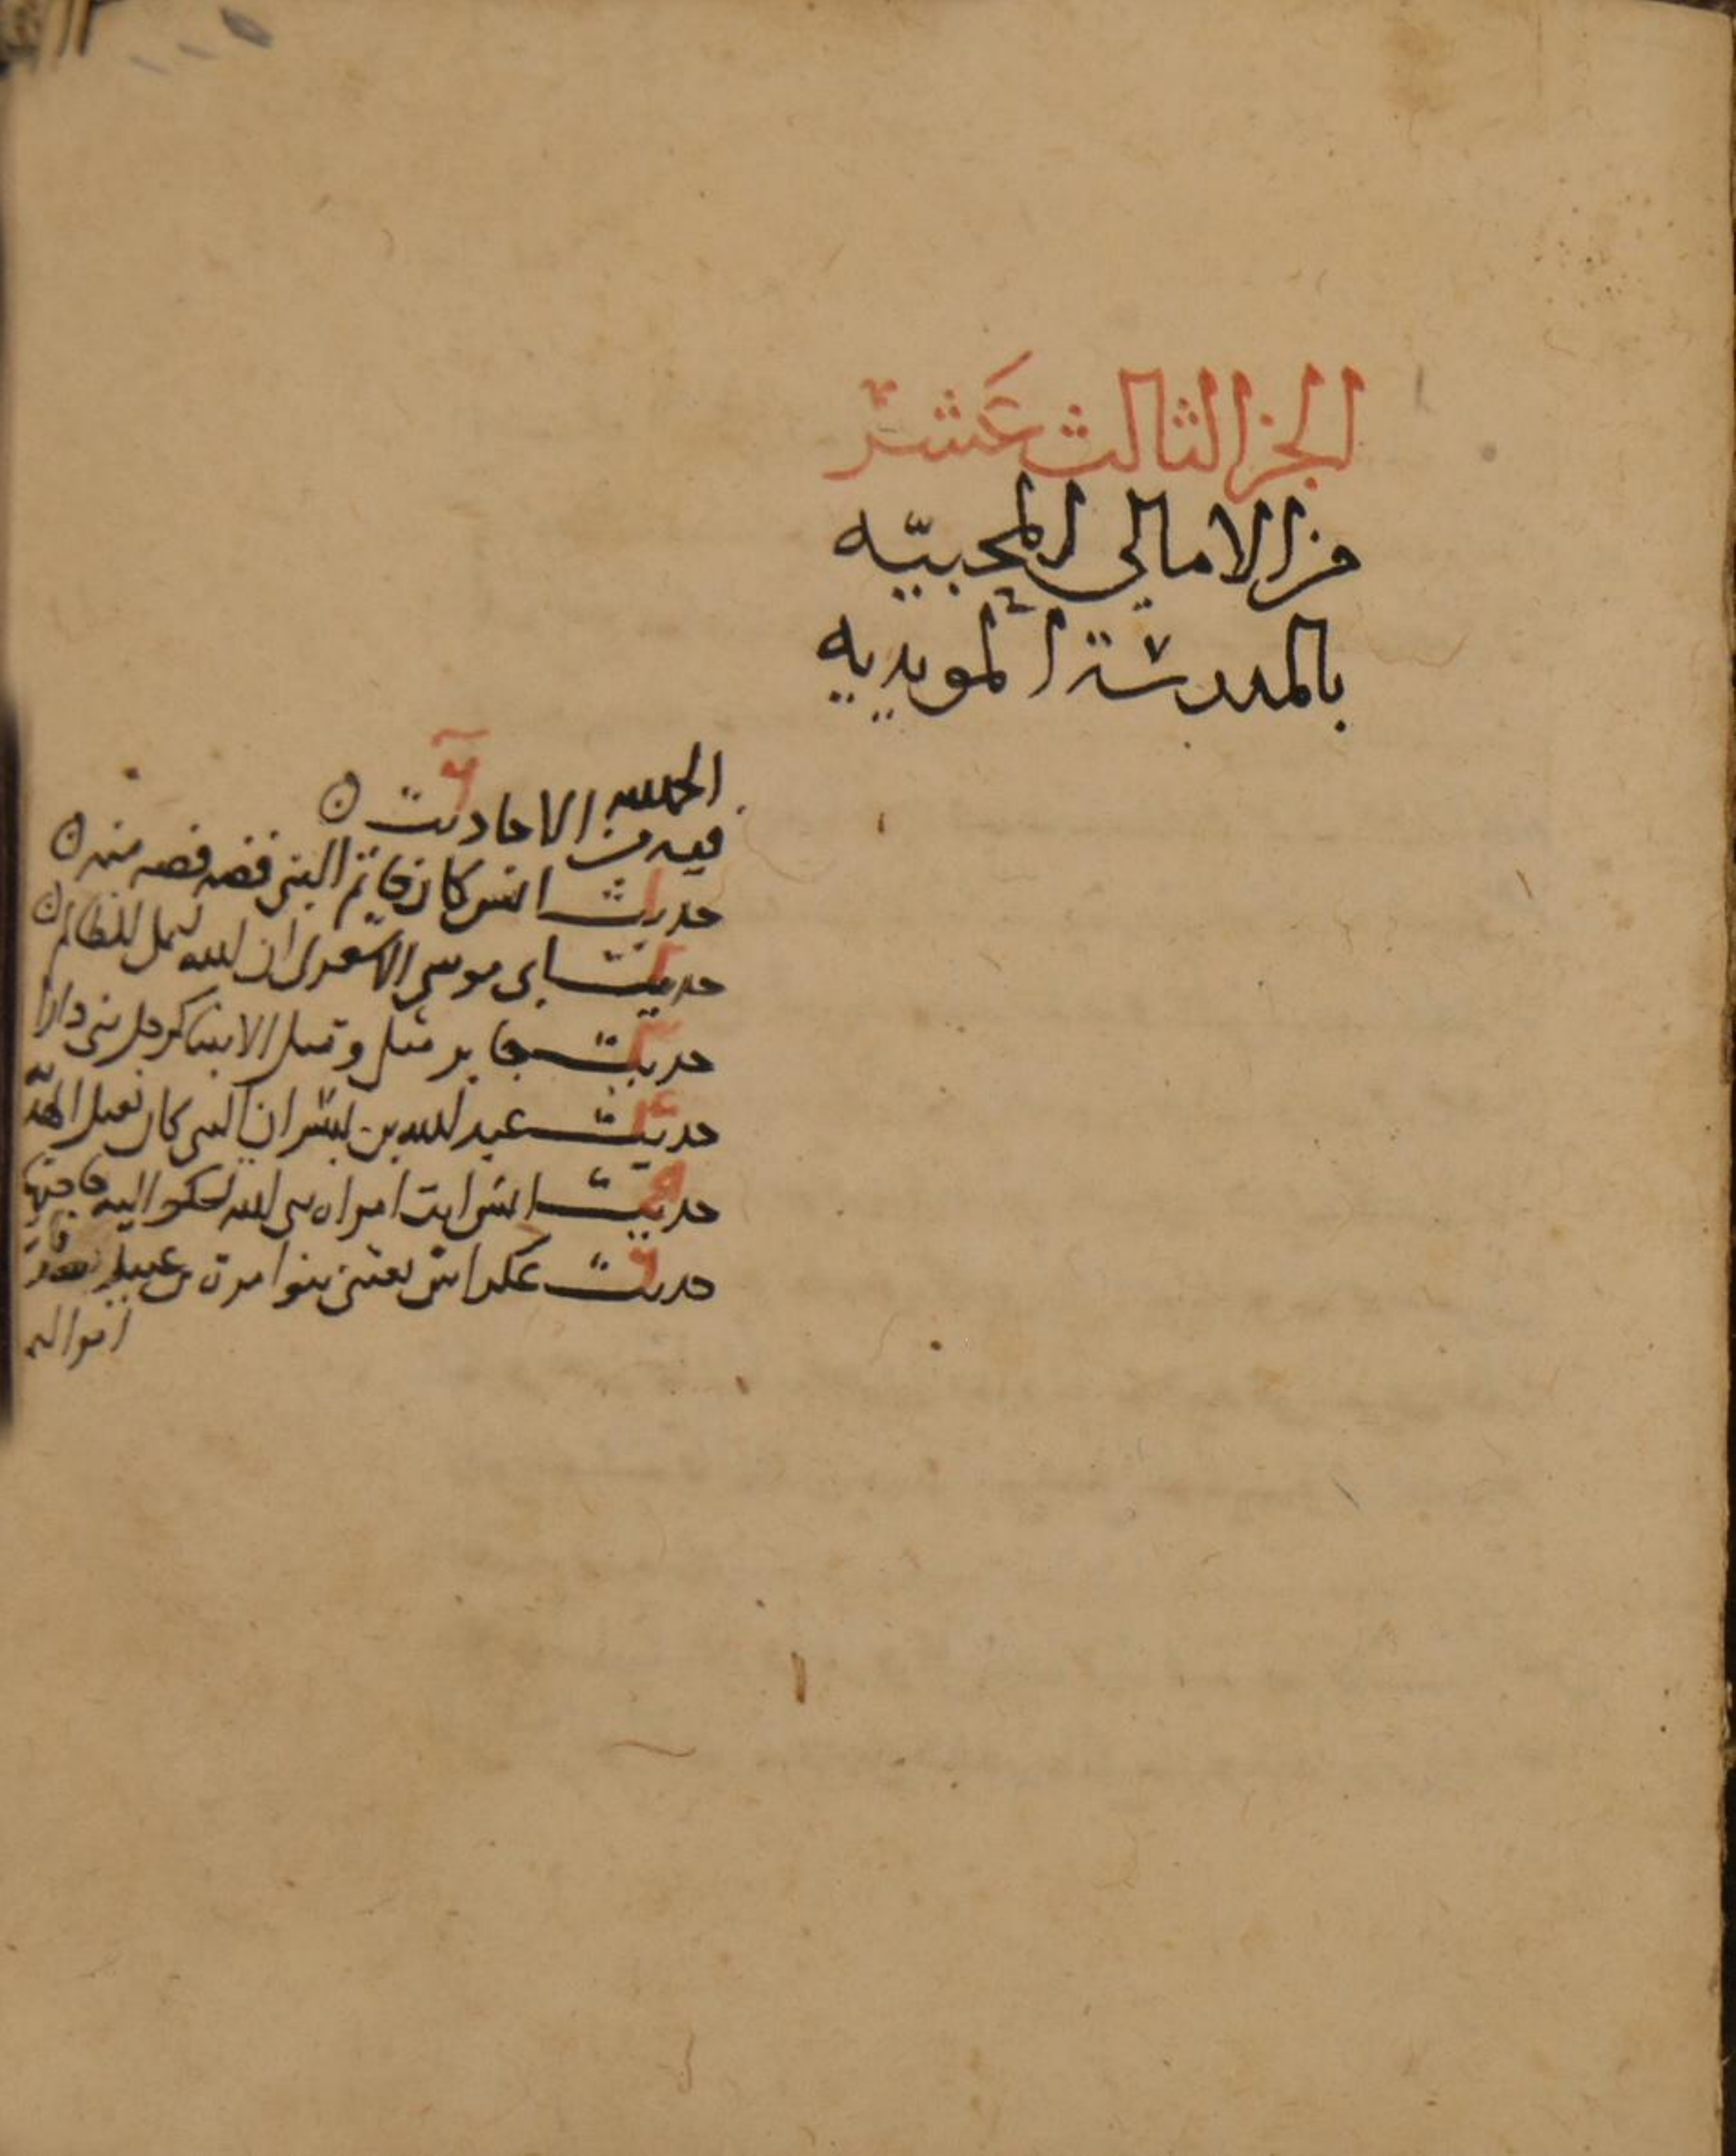 الجز الثالث عَشر
من الامالي المحبيّه
بالمدرسة المويديه
الحمد لله
فيه من الاحاديث ٦
حديث انس كان خاتم النبي فضه فصه منه
حديث ابى موسى الاشعرى ان الله ليملى للظالم
حديث جابر مثلى ومثل الانبيا كرجل بنى دارا
حديث عبد الله بن بسر ان النبى كان يقبل الهديّه
حديث انس اتت امراه نبى الله تشكوا اليه حاجتها
حديث عكراش بعثنى بنوا مرة بن عبيد
اموالهم